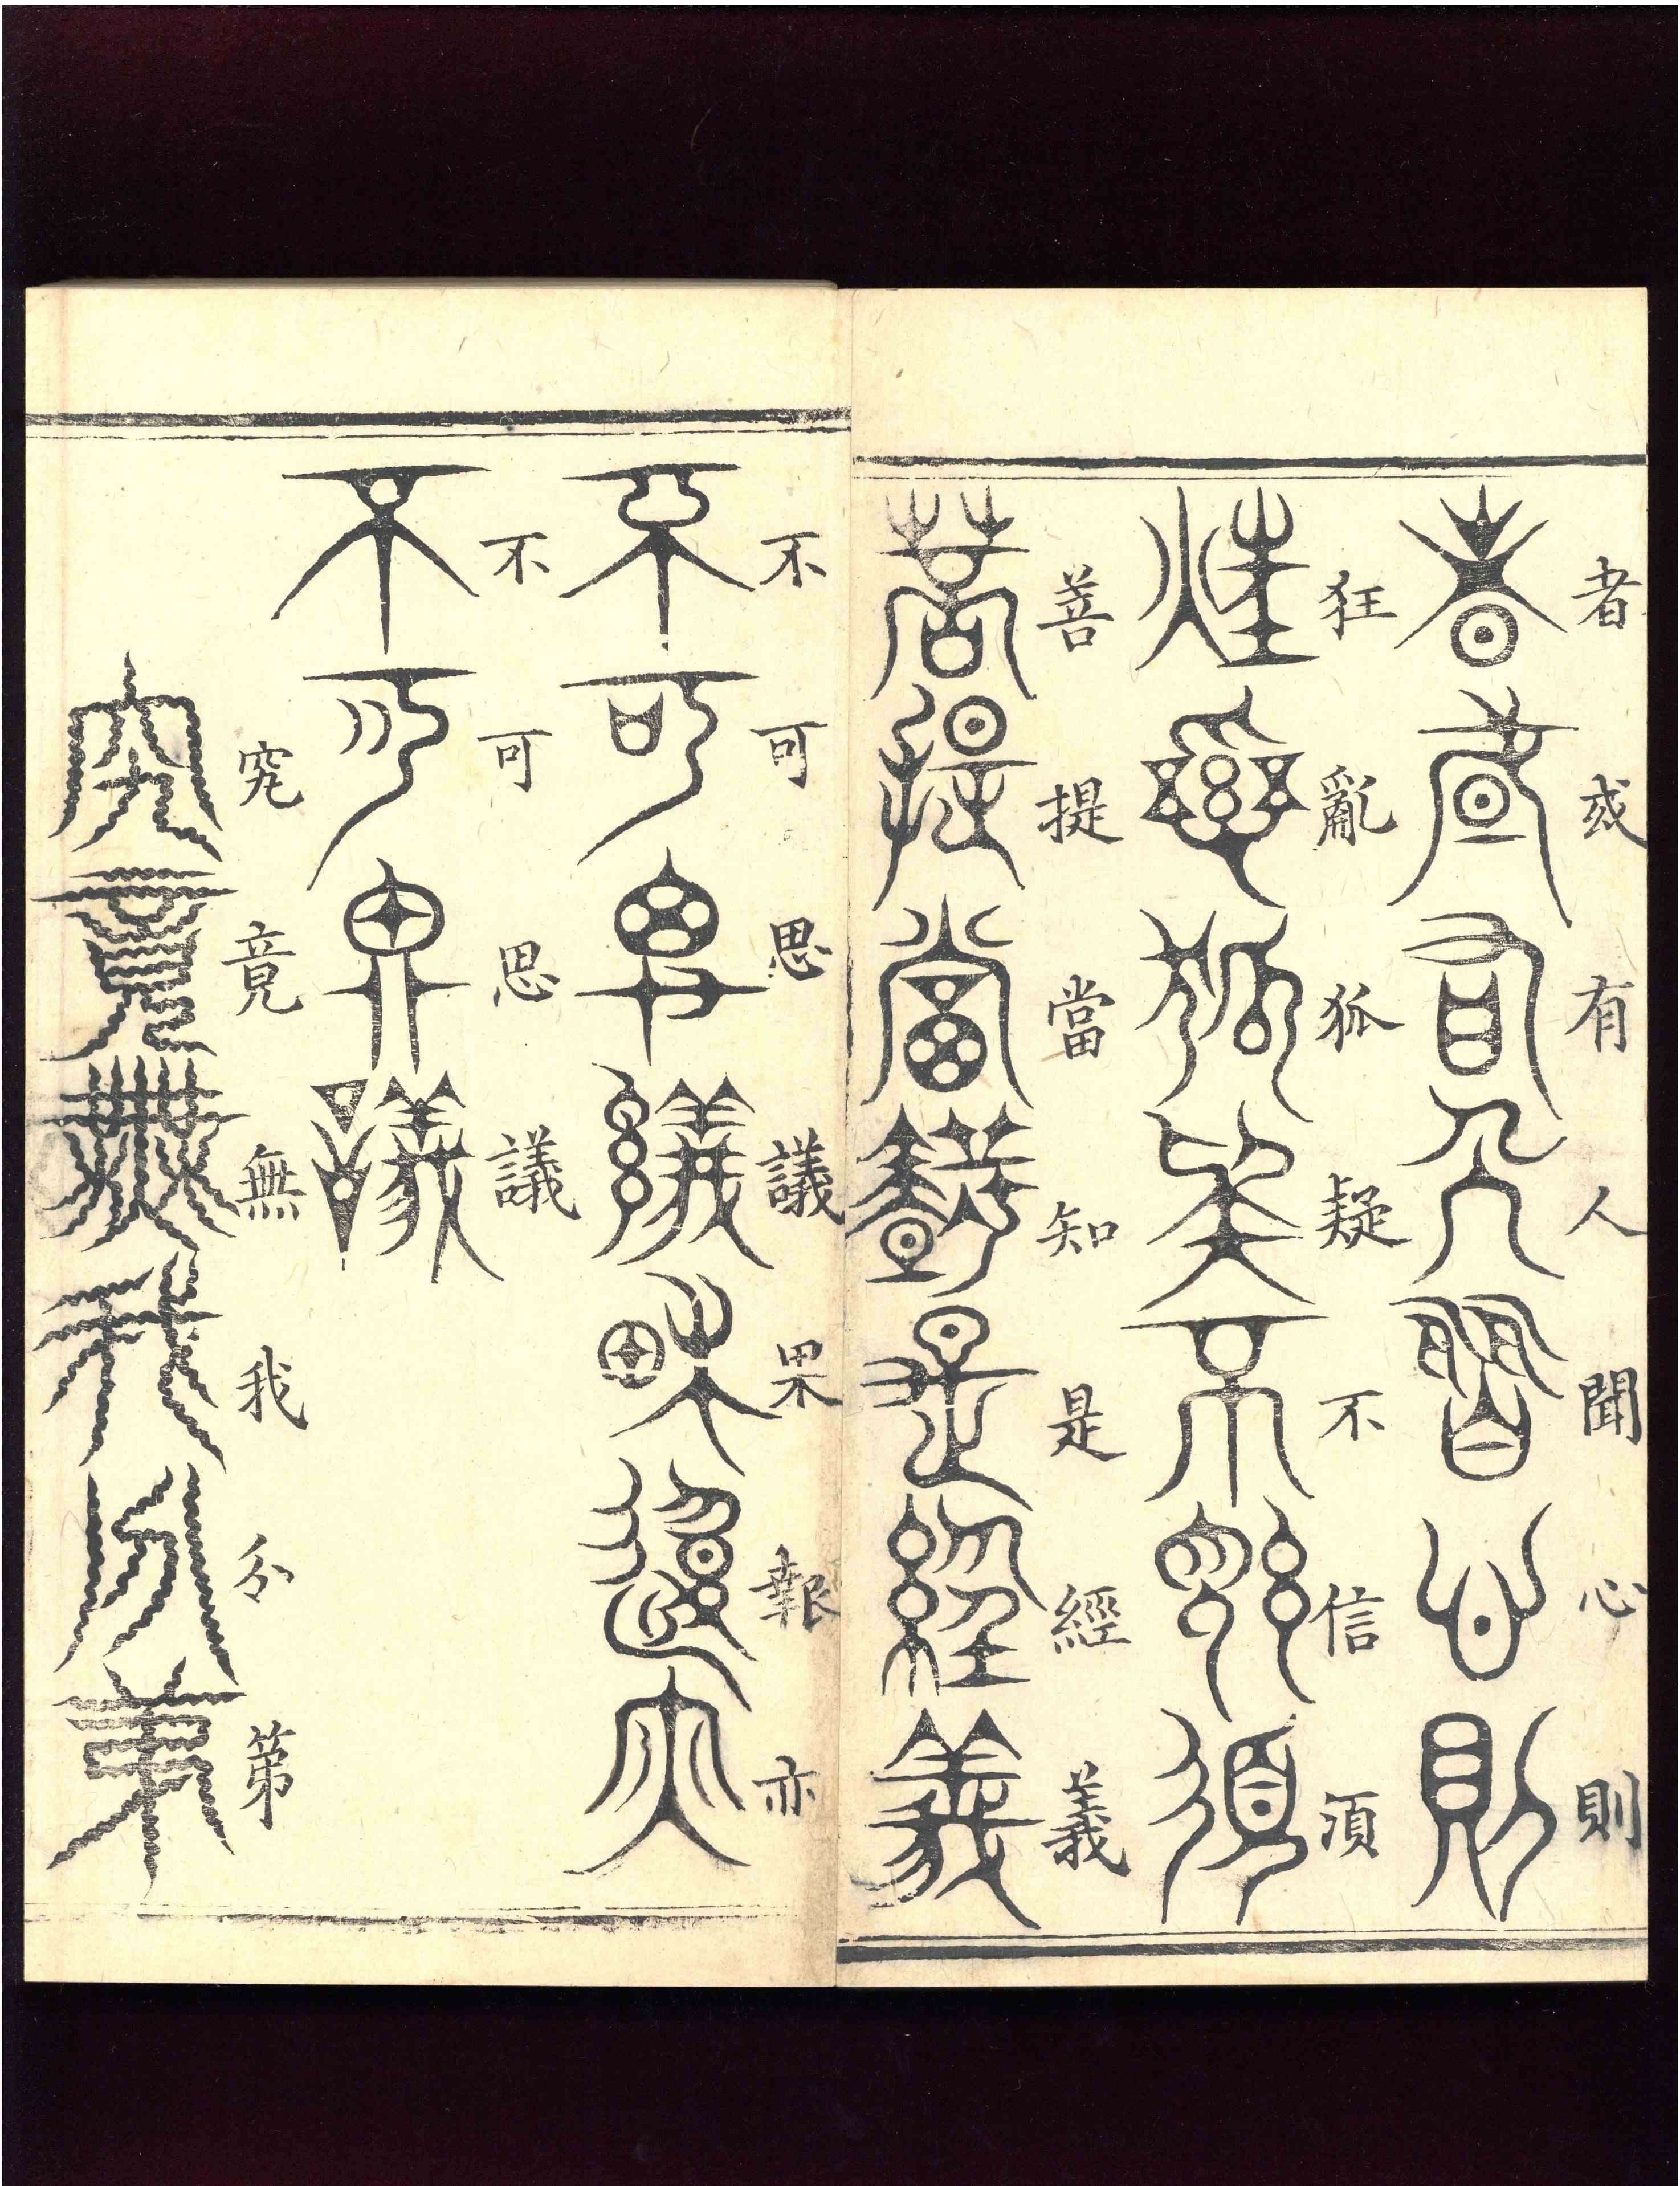 者或有人聞心則
狂亂狐疑不信須
菩提當知是經義
不可思議果報亦
不可思議
究竟無我分第